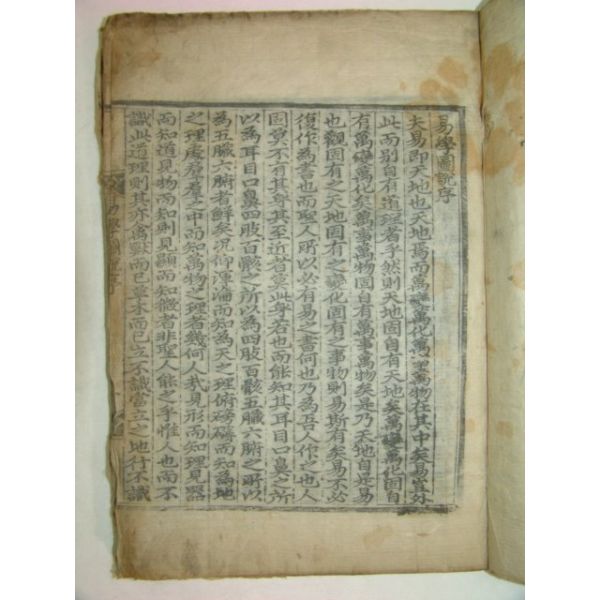 易學圖說序
夫易即天地也天地焉而萬變萬化萬事萬物在其中矣易豈外
此而別自有道理者乎然則天地固自有天地矣萬變萬化固自
有萬變萬化矣萬事萬物固自有萬事萬物矣是乃天地自是易
也觀固有之天地固有之變化固有之事物則易斯有矣易不必
復作為書也而聖人所以必有易之書何也乃為吾人作之也人
固莫不有其身其至近者莫此身若也而能知其耳目口鼻之所
以為耳目口鼻四肢百骸之所以為四肢百骸五臟六腑之所以
為五臟六腑者鮮矣况仰渾淪而知為天之理俯磅礴而知為地
之理處羣羣之中而知萬物之理者幾何人哉見形而知理見器
而知道見物而知則見顯而知微者非聖人能之乎惟人也而不
識此道理則其亦禽獸而已草木而已立不識當立之地行不識
易學圖說序